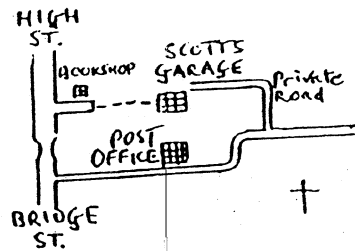 HIGH
ST.
BOOKSHOP
SCOTTS
GARAGE
Private
Road
POST
OFFICE
BRIDGE
ST.